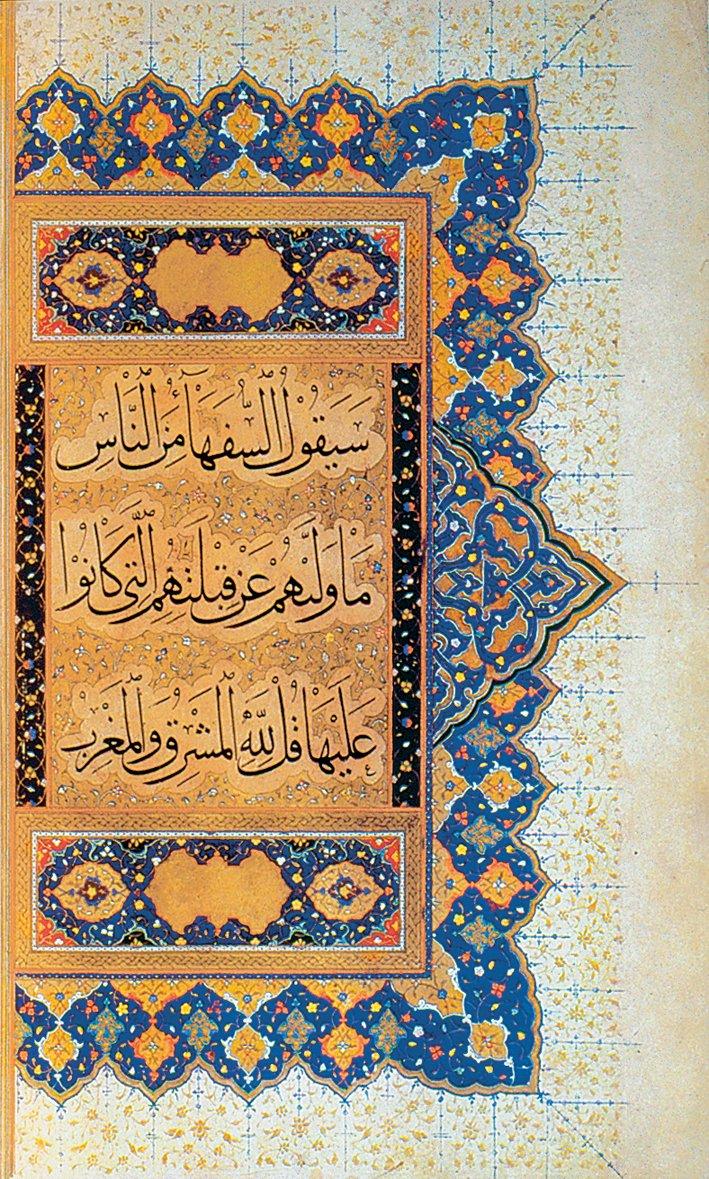 سَيَقُولُ السُّفَهَاۤءُ مِنَ النَّاسِ
مَا وَلَّىٰهُمْ عَنْ قِبْلَتِهِمُ الَّتِي كَانُوا
عَلَيْهَا قُلْ لِلَّهِ الْمَشْرِقُ وَالْمَغْرِبُ